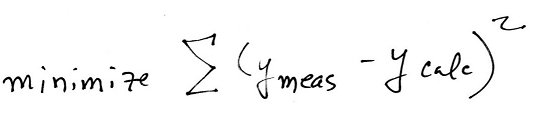 minimize Σ (y meas - y calc)²